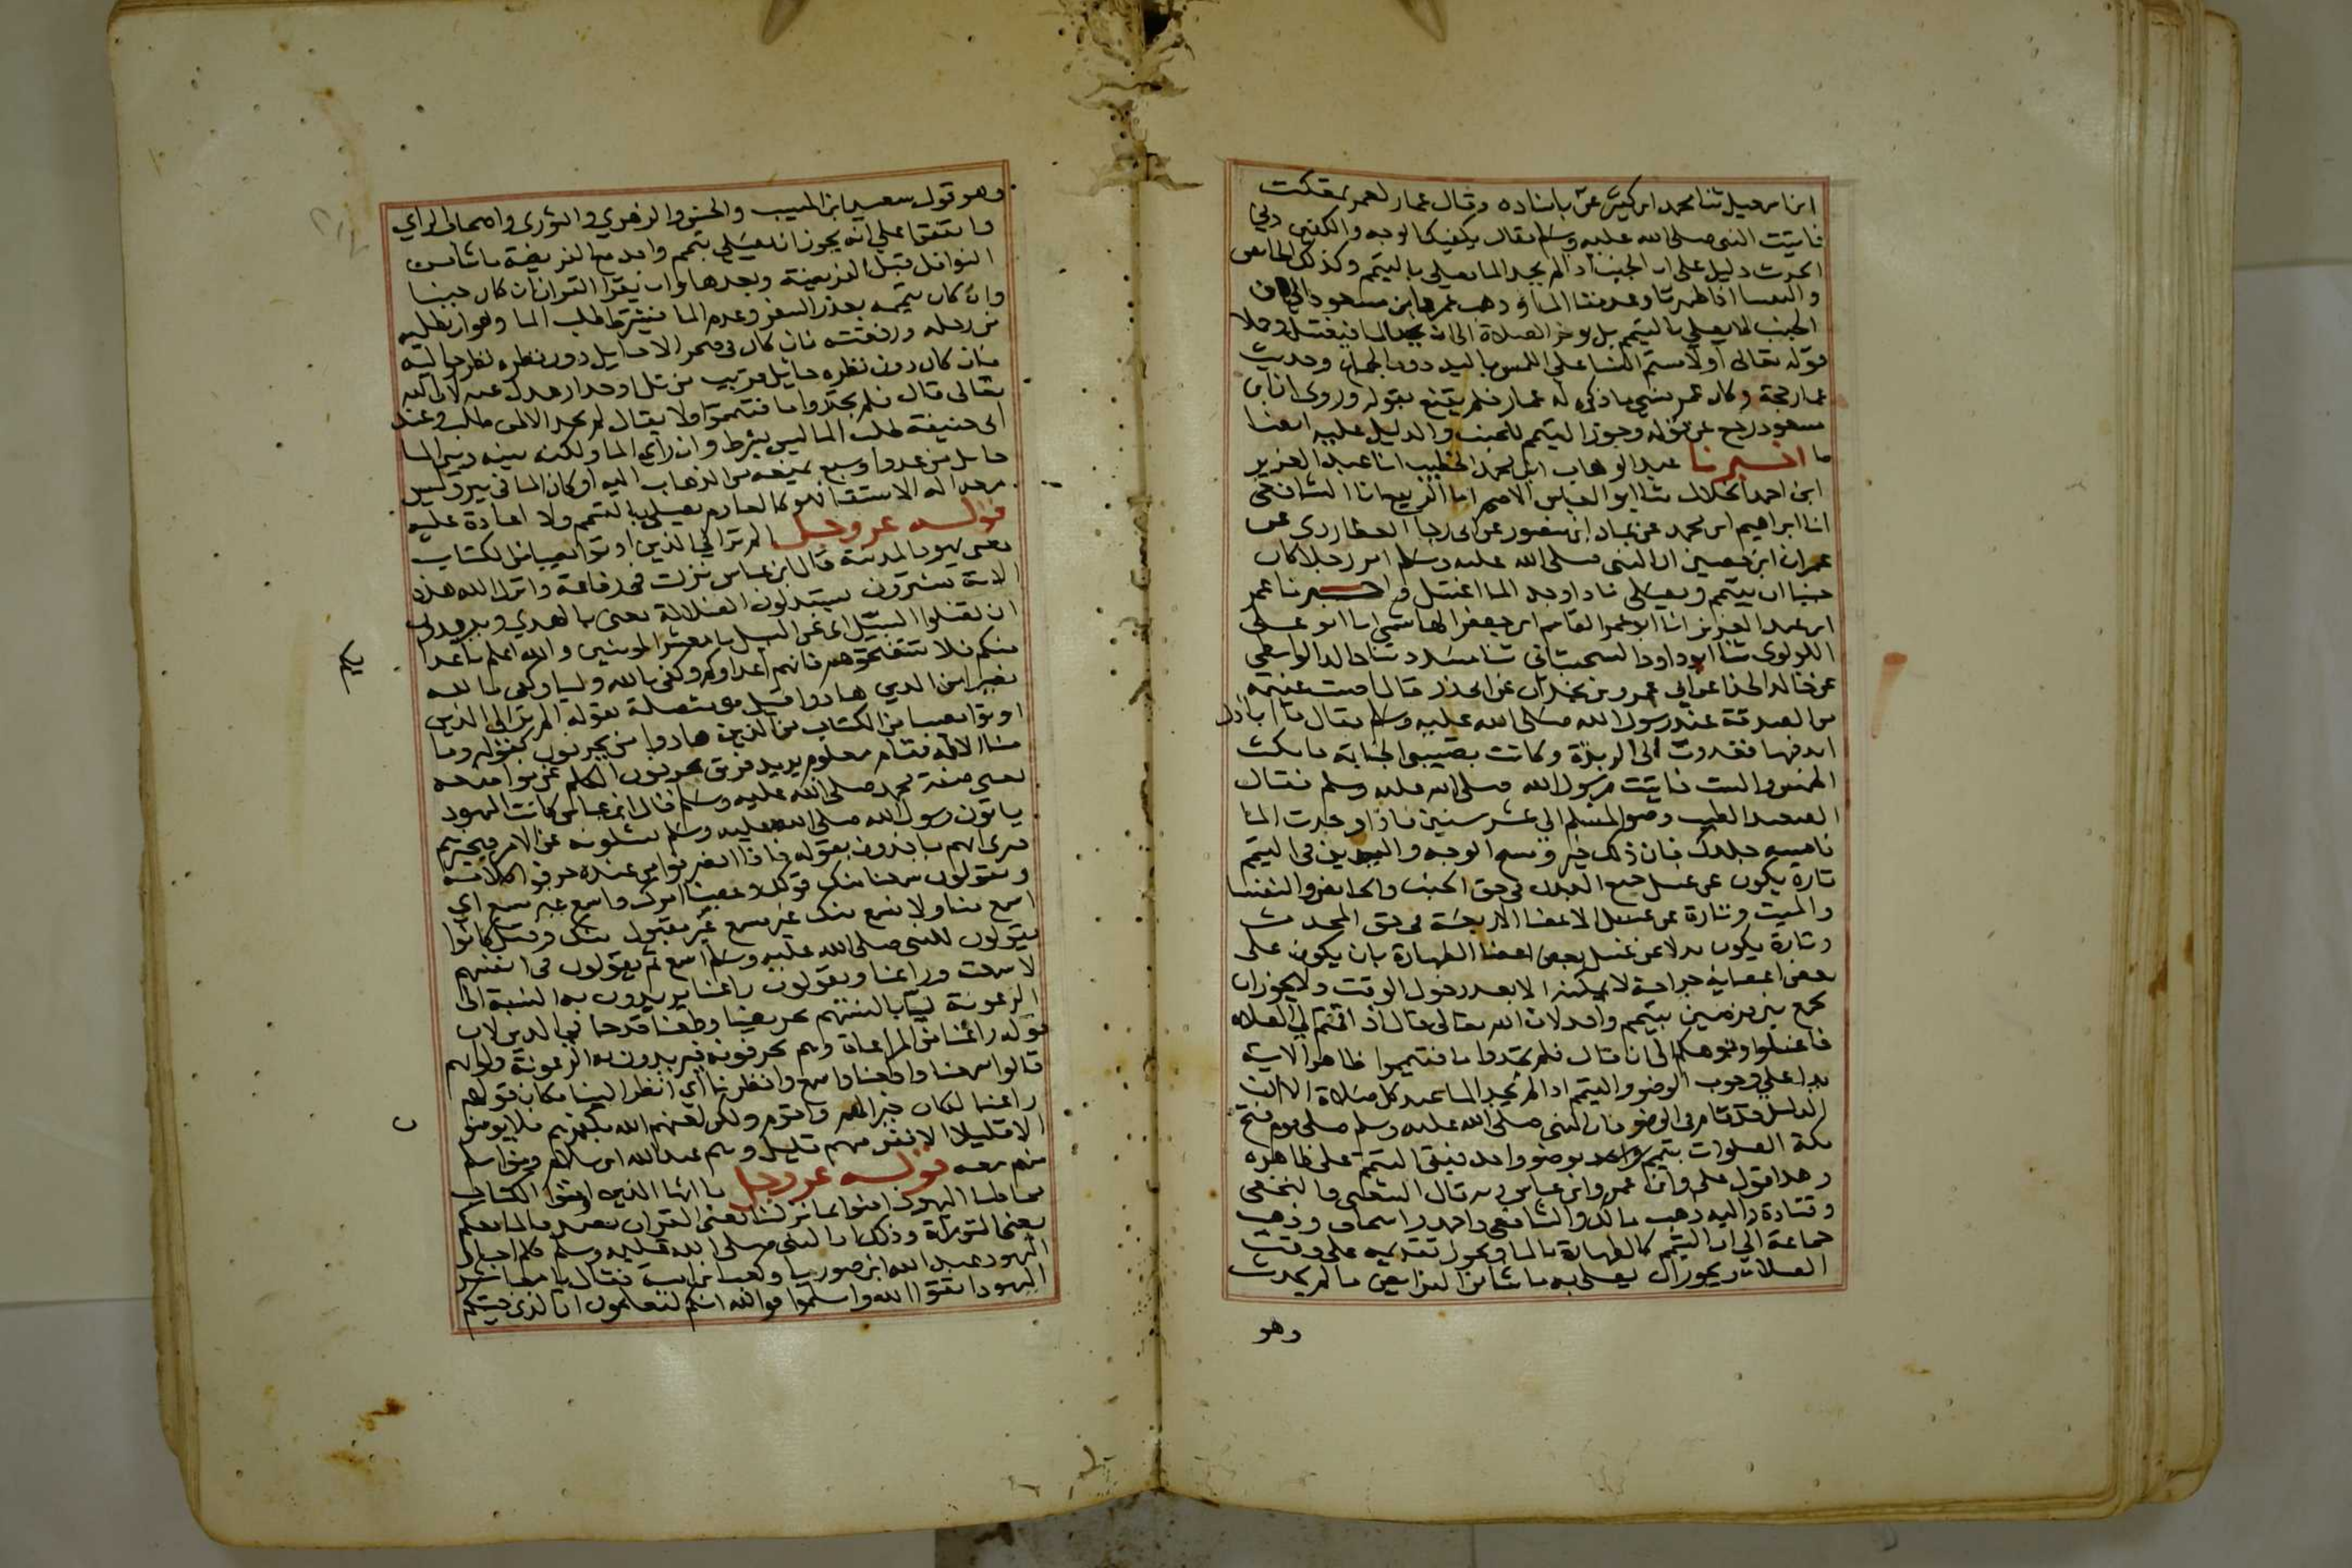 ابن اسمعيل ثنا محمد ابن كثير عن باسناده وقال عمار لعمر تمعكت
فاتيت النبي صلى الله عليه وسلم فقال يكفيك الوجه والكفين وفي
الحديث دليل على ان الجنب اذا لم يجد الما يصلي بالتيمم وكذلك الحايض
والنفسا اذا طهرتا وعدمتا الما وذهب عمر وابن مسعود الى ان
الجنب لا يصلي بالتيمم بل يوخر الصلاة الى ان يجد الما فيغتسل وحملا
قوله تعالى او لامستم النسا على اللمس باليد دون الجماع وحديث
عمار حجة وكان عمر نسي ما ذكره له عمار فلم يقنع بقوله وروي ان ابن
مسعود رجع عن قوله وجوز التيمم للجنب والدليل عليه ايضا
ما اخبرنا عبد الوهاب ابن محمد الخطيب انا عبد العزيز
ابن احمد الخلال ثنا ابو العباس الاصم انا الربيع انا الشافعي
انا ابراهيم ابن محمد عن عباد ابن منصور عن ابي رجا العطاردي عن
عمران ابن حصين ان النبي صلى الله عليه وسلم امر رجلا كان
جنبا ان يتيمم ويصلي فاذا وجد الما اغتسل و اخبرنا عمر
ابن عبد العزيز انا ابو عمر القاسم ابن جعفر الهاشمي انا ابو على
اللولوي ثنا ابو داود السجستاني ثنا مسدد ثنا خالد الواسطي
عن خالد الحذا عن ابي عمرو بن بجدان عن ابي ذر قال اجتمعت غنيمة
من الصدقة عند رسول الله صلى الله عليه وسلم فقال يا ابا ذر
ابد فيها فبدوت الى الربذة وكانت تصيبني الجنابة فامكث
الخمس والست فاتيت رسول الله صلى الله عليه وسلم فقال
الصعيد الطيب وضو المسلم الي عشر سنين فاذا وجدت الما
فامسه جلدك فان ذلك خير ومسح الوجه واليدين في التيمم
تارة يكون عن غسل جميع البدن في حق الجنب والحايض والنفسا
والميت وتارة عن غسل الاعضا الاربعة في حق المحدث
وتارة يكون بدلا عن غسل بعض اعضا الطهارة بان يكون على
بعض اعضايه جراحة لا يمكنه الا بعد دخول الوقت ولا يجوز ان
يجمع بين فرضين بتيمم واحد لان الله تعالى قال اذا قمتم الى الصلاة
فاغسلوا وجوهكم الى ان قال فلم تجدوا ما فتيمموا ظاهر الاية
يدل على وجوب الوضو والتيمم اذا لم يجد الما عند كل صلاة الا ان
الدليل قد قام في الوضو فان النبي صلى الله عليه وسلم صلى يوم فتح
مكة الصلوات بوضو واحد فبقي التيمم على ظاهره
وهذا قول علي وابن عمر وابن عباس وبه قال الشعبي والنخعي
وقتادة واليه ذهب مالك والشافعي واحمد واسحاق وذهب
جماعة الي ان التيمم كالطهارة بالما ويجوز تقديمه على وقت
الصلاة ويجوز ان يصلي به ما شا من الفرايض ما لم يحدث
وهو
وهو قول سعيد ابن المسيب والحسن والزهري والثوري واصحاب الراي
واتفقوا على انه يجوز ان يصلي بتيمم واحد مع الفريضة ما شا من
النوافل قبل الفريضة وبعدها وان يقرا القران ان كان جنبا
وان كان تيممه بعذر السفر وعدم الما فيشترط طلب الما وهو ان يطلبه
من رحله ورفقته فان كان في صحرا لا حايل دون نظره نظر حواليه
فان كان دون نظره حايل قريب من تل او جدار عدل عنه لان الله
تعالى قال فلم تجدوا ما فتيمموا ولا يقال لم يجد الا لمن طلب وعند
ابي حنيفة طلب الما ليس بشرط وان راي الما ولكن بينه وبين الما
حايل من عدو او سبع يمنعه من الذهاب اليه او كان الما في بير وليس
معه اله الاستقا فهو كالعادم يصلي بالتيمم ولا اعادة عليه
قوله عز وجل الم تر الي الذين اوتوا نصيبا من الكتاب
يعني يهود المدينة قال ابن عباس نزلت في رفاعة وانزل الله هذه
الاية يشترون يستبدلون الضلالة يعني بالهدي ويريدون
ان تضلوا السبيل اي عن السبيل يا معشر المومنين والله اعلم باعدا
يكم
منكم فلا تستنصحوهم فانهم اعداوكم وكفى بالله وليا وكفى بالله
نصيرا من الذين هادوا قيل هي متصلة بقوله الم تر الى الذين
اوتوا نصيبا من الكتاب من الذين هادوا من يحرفون كقوله وما
منا الا له مقام معلوم يريد فريق يحرفون الكلم عن مواضعه
يعني صفة محمد صلى الله عليه وسلم قال ابن عباس كانت اليهود
ياتون رسول الله صلى الله عليه وسلم يسئلونه عن الامر فيخبرهم
فيرى انهم ياخذون بقوله فاذا انصرفوا من عنده حرفوا كلامه
ويقولون سمعنا منك قولك وعصينا امرك واسمع غير مسمع اي
اسمع منا ولا نسمع منك غير مسمع غير مقبول منك وقيل كانوا
يقولون للنبي صلى الله عليه وسلم اسمع ثم يقولون في انفسهم
لا سمعت وراعنا ويقولون راعنا يريدون به النسبة الى
الرعونة ليا بالسنتهم تحريفا وطعنا قدحا في الدين لان
قوله راعنا من المراعاة وهم يحرفونه يريدون به الرعونة ولو انهم
قالوا سمعنا واطعنا واسمع وانظرنا اي انظر الينا مكان قولهم
راعنا لكان خيرا لهم واقوم ولكن لعنهم الله بكفرهم فلا يومنون
الا قليلا الا نفر منهم قليل وهم عبد الله ابن سلام ومن اسلم
منهم معه قوله عز وجل يا ايها الذين اوتوا الكتاب
يخاطب اليهود امنوا بما نزلنا يعني القران مصدقا لما معكم
يعني التوراة وذلك ان النبي صلى الله عليه وسلم كلم احبار
اليهود عبد الله ابن صوريا وكعب بن اسد فقال يا معشر
اليهود اتقوا الله واسلموا فوالله انكم لتعلمون ان الذي جيتكم